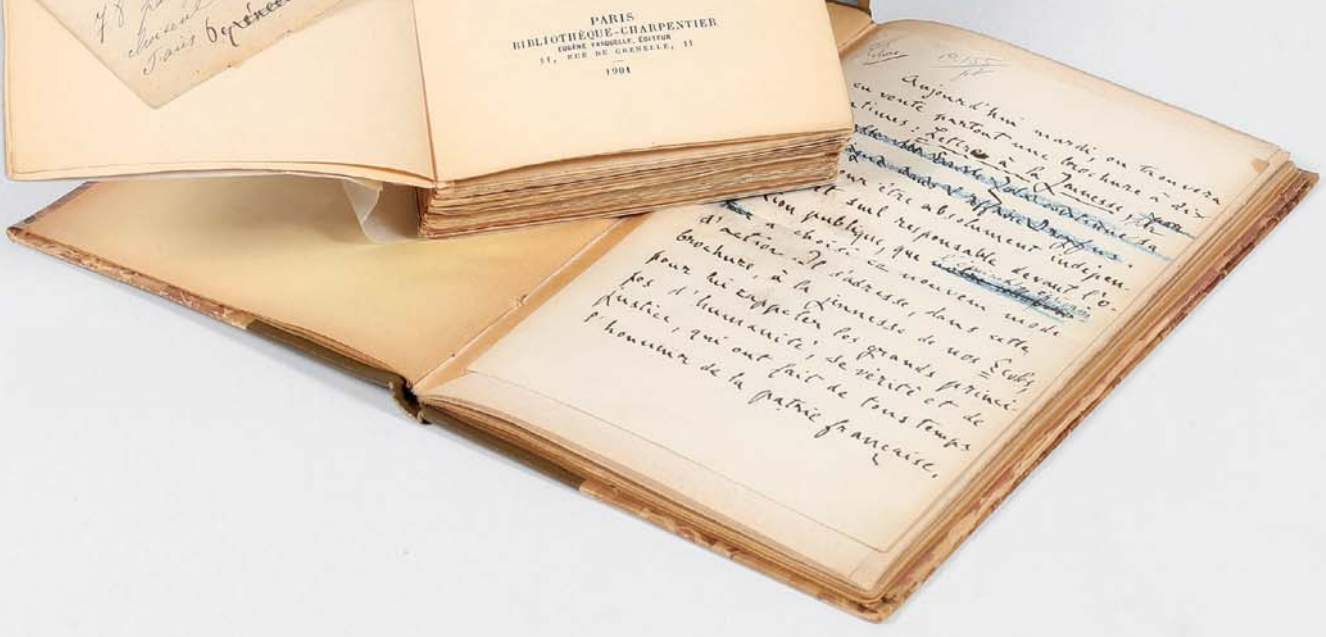 78
choisene
Pyrénées
PARIS
BIBLIOTHÈQUE-CHARPENTIER
EUGÈNE FASQUELLE, ÉDITEUR
11, RUE DE GRENELLE, 11
1901
Aujourd'hui mardi, on trouvera
en vente partout une brochure à dix
centimes : Lettre à la Jeunesse,
l'affaire Dreyfus.
pour être absolument indépen-
et seul responsable devant l'o-
pinion publique, que
a choisi ce nouveau mode
d'action. Il s'adresse, dans cette
brochure, à la jeunesse de nos Écoles,
pour lui rappeler les grands princi-
pes d'humanité, de vérité et de
justice, qui ont fait de tous temps
l'honneur de la patrie française.